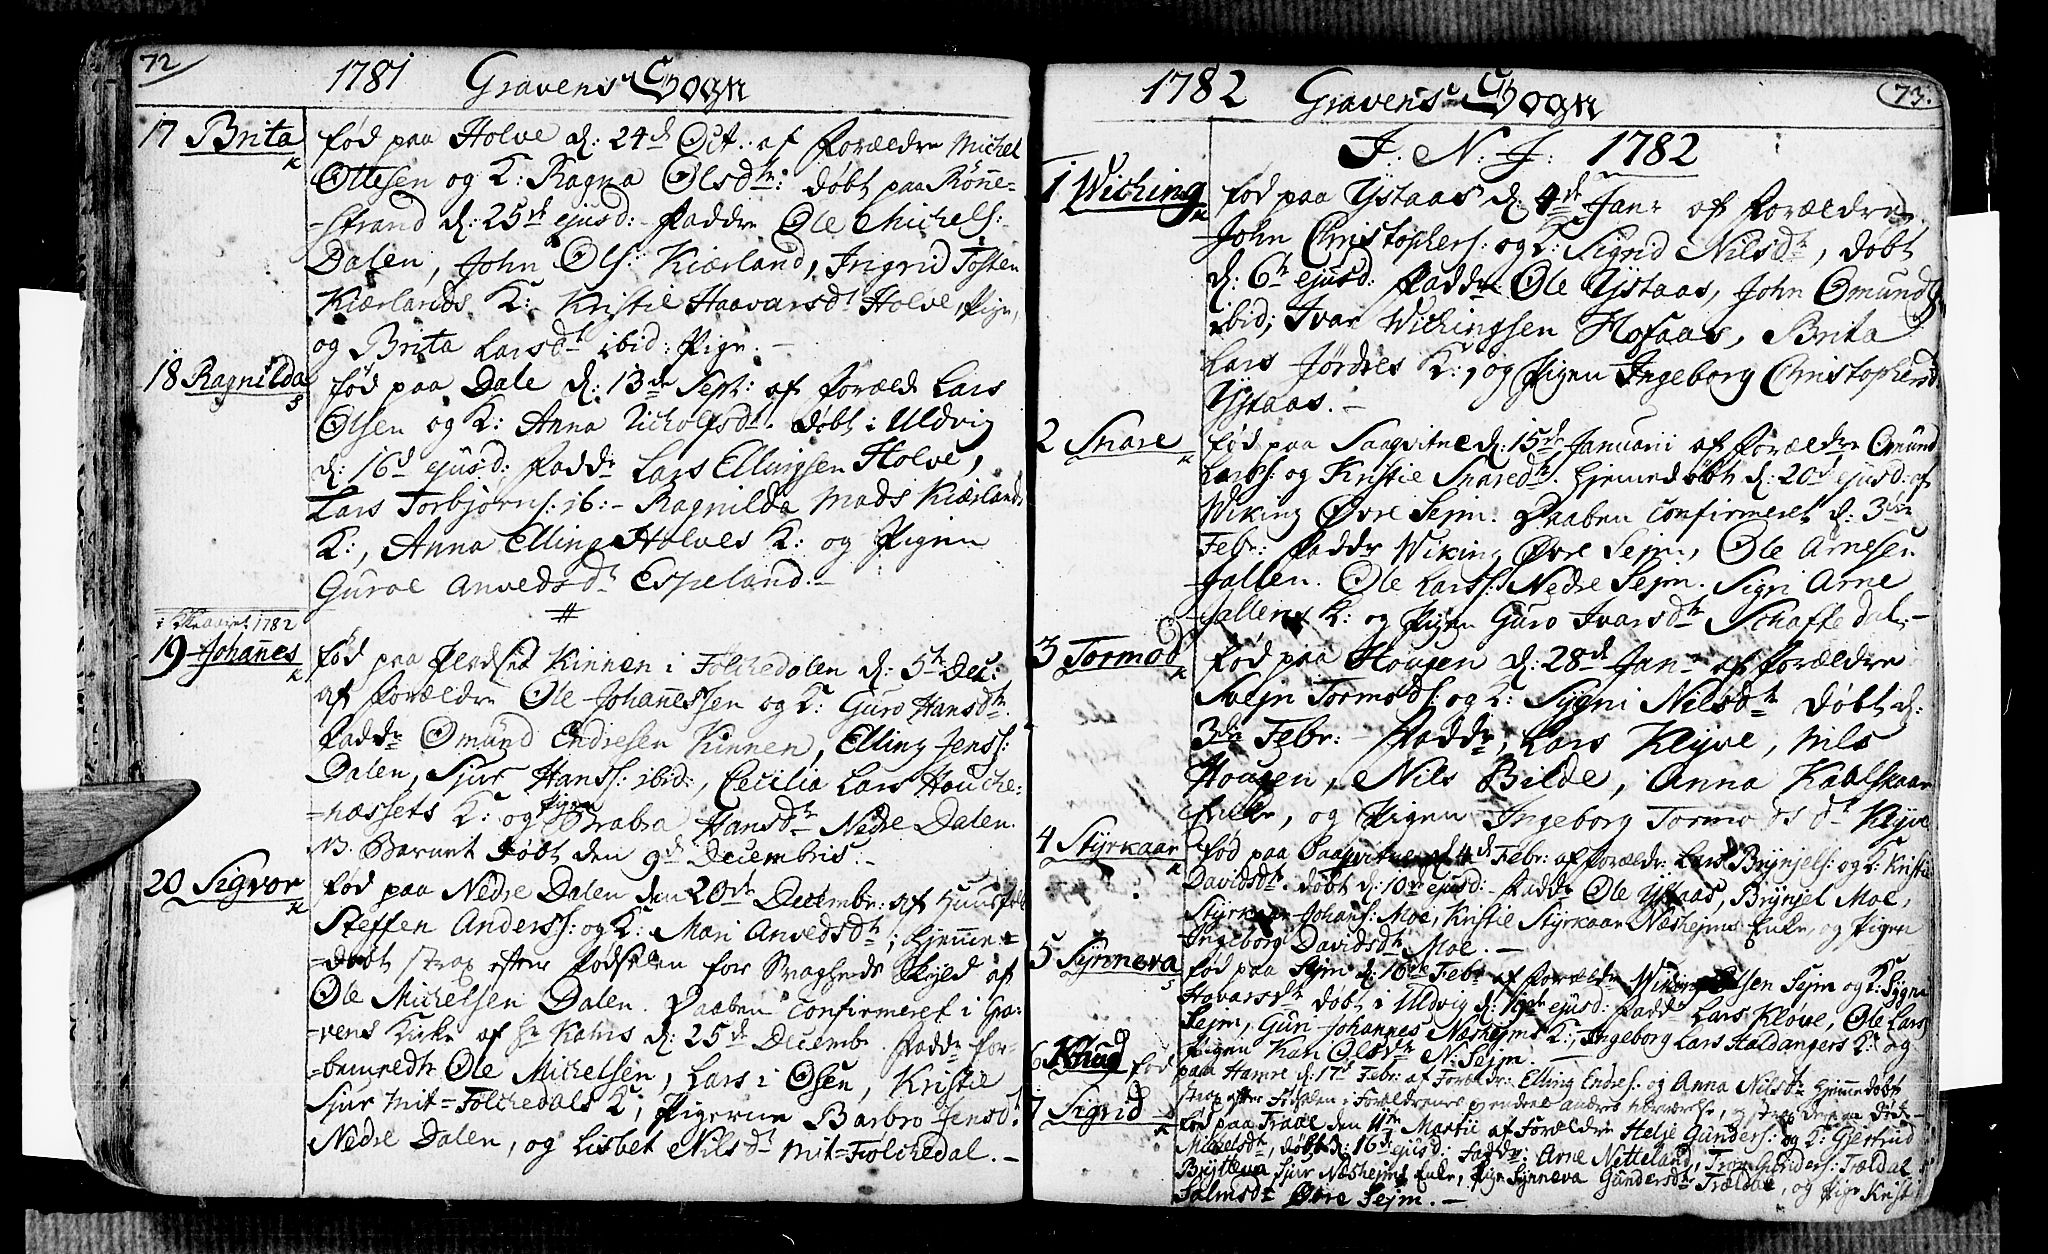 72
1781 Gravens Sogn
17 Brita
fød paa Holve d: 24de Oct: af Forældre Michel
Ottesen og K: Ragna Olsdtr: døbt paa Rønne-
-strand d: 25de ejusd: Faddre Ole Michels:
Dalen, John Ols: Kiærland, Ingrid Tosten
Kiærlands K: Kristie Haavarsdtr Holve, Pige,
og Brita Larsdtr ibid: Pige.-
18 Ragnilda
fød paa Dale d: 13de Sept: af Foræld: Lars
Olsen og K: Anna Nicholfsdtr. Døbt i Uldvig
d: 16d ejusd: Faddr Lars Ellingsen Holve,
Lars Torbjørns: ib:- Ragnilda Mads Kiærlands
K:, Anna Elling Holves K: og Pigen
Guroe Anvedsdtr Espeland.-
#
i Kkeaaret 1782
19 Johannes
fød paa Pladset Kinnen i Folchedalen d: 5te Dec:
af Forældre Ole Johannessen og K: Guro Hansdtr.
Faddr Omund Endresen Kinnen, Elling Jenss:
Dalen, Sjur Hanss: ibid:, Cecilia Lars Houche-
-næssets K: og Pigen Brabra Hansdtr Nedre Dalen.
NB. Barnet Døbt den 9de Decembris.-
20 Sigvor
fød paa Nedre Dalen den 20de Decembr: af Huusfolk
Steffen Anderss: og K: Mari Anvedsdtr; hjemme-
-døbt strax efter Fødselen for Svagheds Skyld af
Ole Michelsen Dalen. Daaben confirmeret i Gra-
-vens Kirke af Hr Kahrs d: 25de Decembr. Faddr for-
-bemeldte Ole Michelsen, Lars i Osen, Kristie
Sjur Mit-Folchedals K:, Pigerne Barbro Jensdtr.
Nedre Dalen, og Lisbet Nilsdtr Mit-Folchedal.-
73.
1782 Gravens Sogn
J: N: J: 1782
1 Wiching
fød paa Ystaas d: 4de Janr af Forældre
John Christophers: og K: Sigrid Nilsdtr, døbt
d: 6te ejusd: Faddr Ole Ystaas, John Omunds
ibid; Ivar Wichingsen Hofaas, Brita
Lars Jørdres K:, og Pigen Ingeborg Christophersd
Ystaas.-
2 Snare
fød paa Saaqvitne d: 15de Januarii af Forældre Omund
Larss: og Kristie Snaredtr. Hjemmedøbt d: 20de ejusd: af
Wiking Øvre Sejm. Daaben confirmeret d: 3die
Febr: Faddr Wiking Øvre Sejm, Ole Arnesen
Hallen. Ole Larss: Nedre Sejm. Sigri Arne
Hallens K: og Pigen Guro Ivarsdtr Schaftedal.-
3 Tormod
fød paa Hougen d: 28de Jan: af Forældre
Svejn Tormods: og K: Sygni Nilsdtr Døbt d:
3de Febr: Faddr, Lars Klyve, Nils
Hougen, Nils Bilde, Anna Kablskaar
Enke, og Pigen Ingeborg Tormodsdtr Klyve
4 Styrkaar
fød paa Saaqvitne d: 4de Febr: af Forældr: Lars Brynjels: og K: Kristie
Davidsdtr. døbt d: 10de ejusd:- Faddr Ole Ystaas, Brynjel Moe,
Styrkaar Johans: Moe, Kristie Styrkaar Næshejms Enke, og Pigen
Ingeborg Davidsdtr Moe.-
5 Synneva
fød paa Sejm d: 16de Febr af Forældre Wiking Olsen Sejm og K: Sygne
Hovarsdtr døbt i Uldvig d: 19de ejusd: Faddr Lars Kløve, Ole Lars
Sejm, Guri Johannes Næshejms K:, Ingeborg Lars Haldangers K: og
Pigen Kari Olsdtr N. Sejm.
6 Knud fød
paa Hamre d: 17de Febr: af Foreldr: Elling Endres: og Anna Nilsdtr Hjemmedøbt
strax efter Fødselen i Forældrenes og endeel andres nærværelse, og strax derpaa døde.
7 Sigrid
fød paa Traae den 11te Martii af Forældre Helje Gunders: og K: Gjertrud
Michelsdtr, døbt d: 16de ejusd: Faddr: Arne Netteland, Tron Gunders: Trældal
Bryteva Sjur Næshejms Enke, Pige Synneva Gundersdtr Trældal, og Pige Kristi
Salmsdtr Øvre Sejm.-